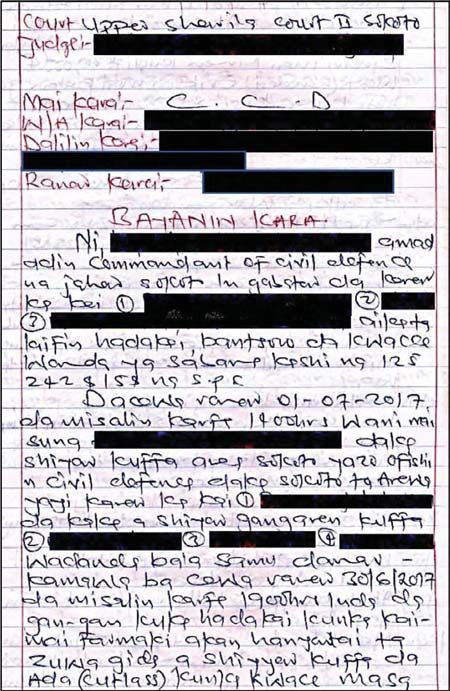 Court Upper sharila court II sokoto
Judge:-
Mai Kara:- C. C. D
W/A Kara:-
Dalilin Kara:-
Ranar Kara:-
BAYANIN KARA.
Ni, a
adin Commandant of civil defence
na jahar sokoto In gabatar da karar
ka kai ①
② ③
laifin hadakai, bantsoro da kwacce
wanda ya sabama kashi na 125
242 & 155 na S.P.C
Dacewa ranar 01-07-2017
da misalin karfe 1400hrs wani mai
suna dake
shiyar kuffa area sokoto yazo ofishi
n civil defence dake sokoto ta Arewa
yayi karar ka kai ①
da kake a shiyar gangaren kuffa
② ③ ④
Wadanda baia samu damar -
kamawa ba cewa ranar 30/6/2017
da misalin karfe 1900hrs
gan-gan kuka hadakai kunka kai-
mai farmaki akan hanyatai ta
zuwa gida a shiyyar kuffa da
Ada (cutlass) kunka kwace masa